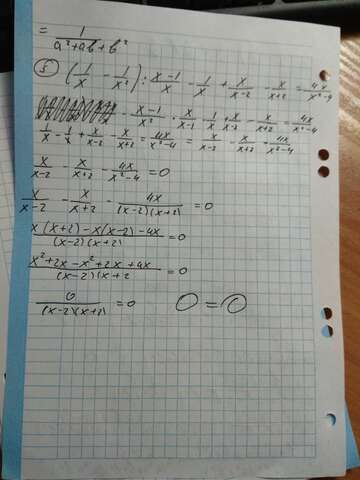 = 1/(a²+ab+b²)
⑧ (1/x - 1/x²) : (x-1)/x - 1/x + x/(x-2) - x/(x+2) = 4x/(x²-4)
- (x-1)/x² · x/(x-1) - 1/x + x/(x-2) - x/(x+2) = 4x/(x²-4)
1/x - 1/x + x/(x-2) - x/(x+2) = 4x/(x²-4) = x/(x-2) - x/(x+2) = 4x/(x²-4)
x/(x-2) - x/(x+2) - 4x/(x²-4) = 0
x/(x-2) - x/(x+2) - 4x/((x-2)(x+2)) = 0
(x(x+2)-x(x-2)-4x)/((x-2)(x+2)) = 0
(x²+2x-x²+2x+4x)/((x-2)(x+2) = 0
0/((x-2)(x+2)) = 0 0=0